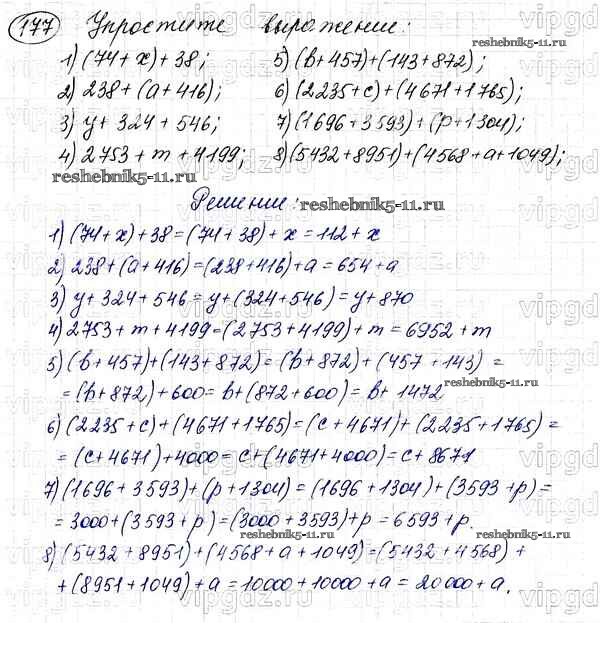 177 Упростите выражение:
1) (74+x)+38; 5) (b+457)+(143+872);
2) 238+(a+416); 6) (2235+c)+(4671+1765);
3) y+324+546; 7) (1696+3593)+(p+1304);
4) 2753+m+4199; 8) (5432+8951)+(4568+a+1049);
reshebnik5-11.ru
reshebnik5-11.ru
Решение:
reshebnik5-11.ru
1) (74+x)+38=(74+38)+x=112+x
2) 238+(a+416)=(238+416)+a=654+a
3) y+324+546=y+(324+546)=y+870
4) 2753+m+4199=(2753+4199)+m=6952+m
5) (b+457)+(143+872)=(b+872)+(457+143)=
=(b+872)+600=b+(872+600)=b+1472
reshebnik5-11.ru
6) (2235+c)+(4671+1765)=(c+4671)+(2235+1765)=
=(c+4671)+4000=c+(4671+4000)=c+8671
7) (1696+3593)+(p+1304)=(1696+1304)+(3593+p)=
=3000+(3593+p)=(3000+3593)+p=6593+p.
reshebnik5-11.ru
8) (5432+8951)+(4568+a+1049)=(5432+4568)+
+(8951+1049)+a=10000+10000+a=20000+a.